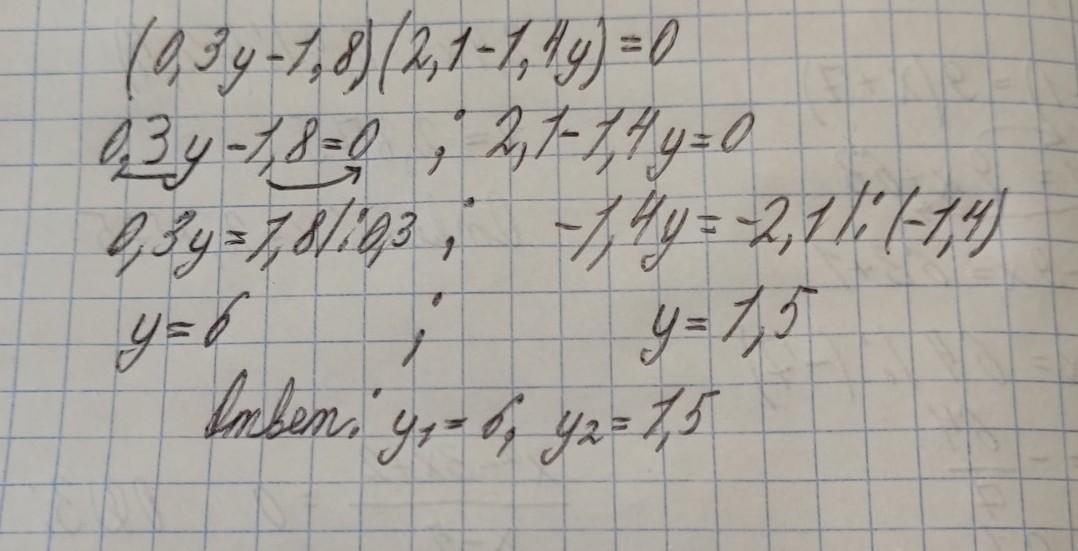 (0,3y-1,8)(2,1-1,4y)=0
0,3y-1,8=0 ; 2,1-1,4y=0
0,3y=1,8/:0,3 ; -1,4y=-2,1/:(-1,4)
y=6 ; y=1,5
Ответ: y₁=6, y₂=1,5